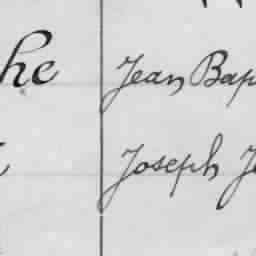 he Jean Bap
Joseph J